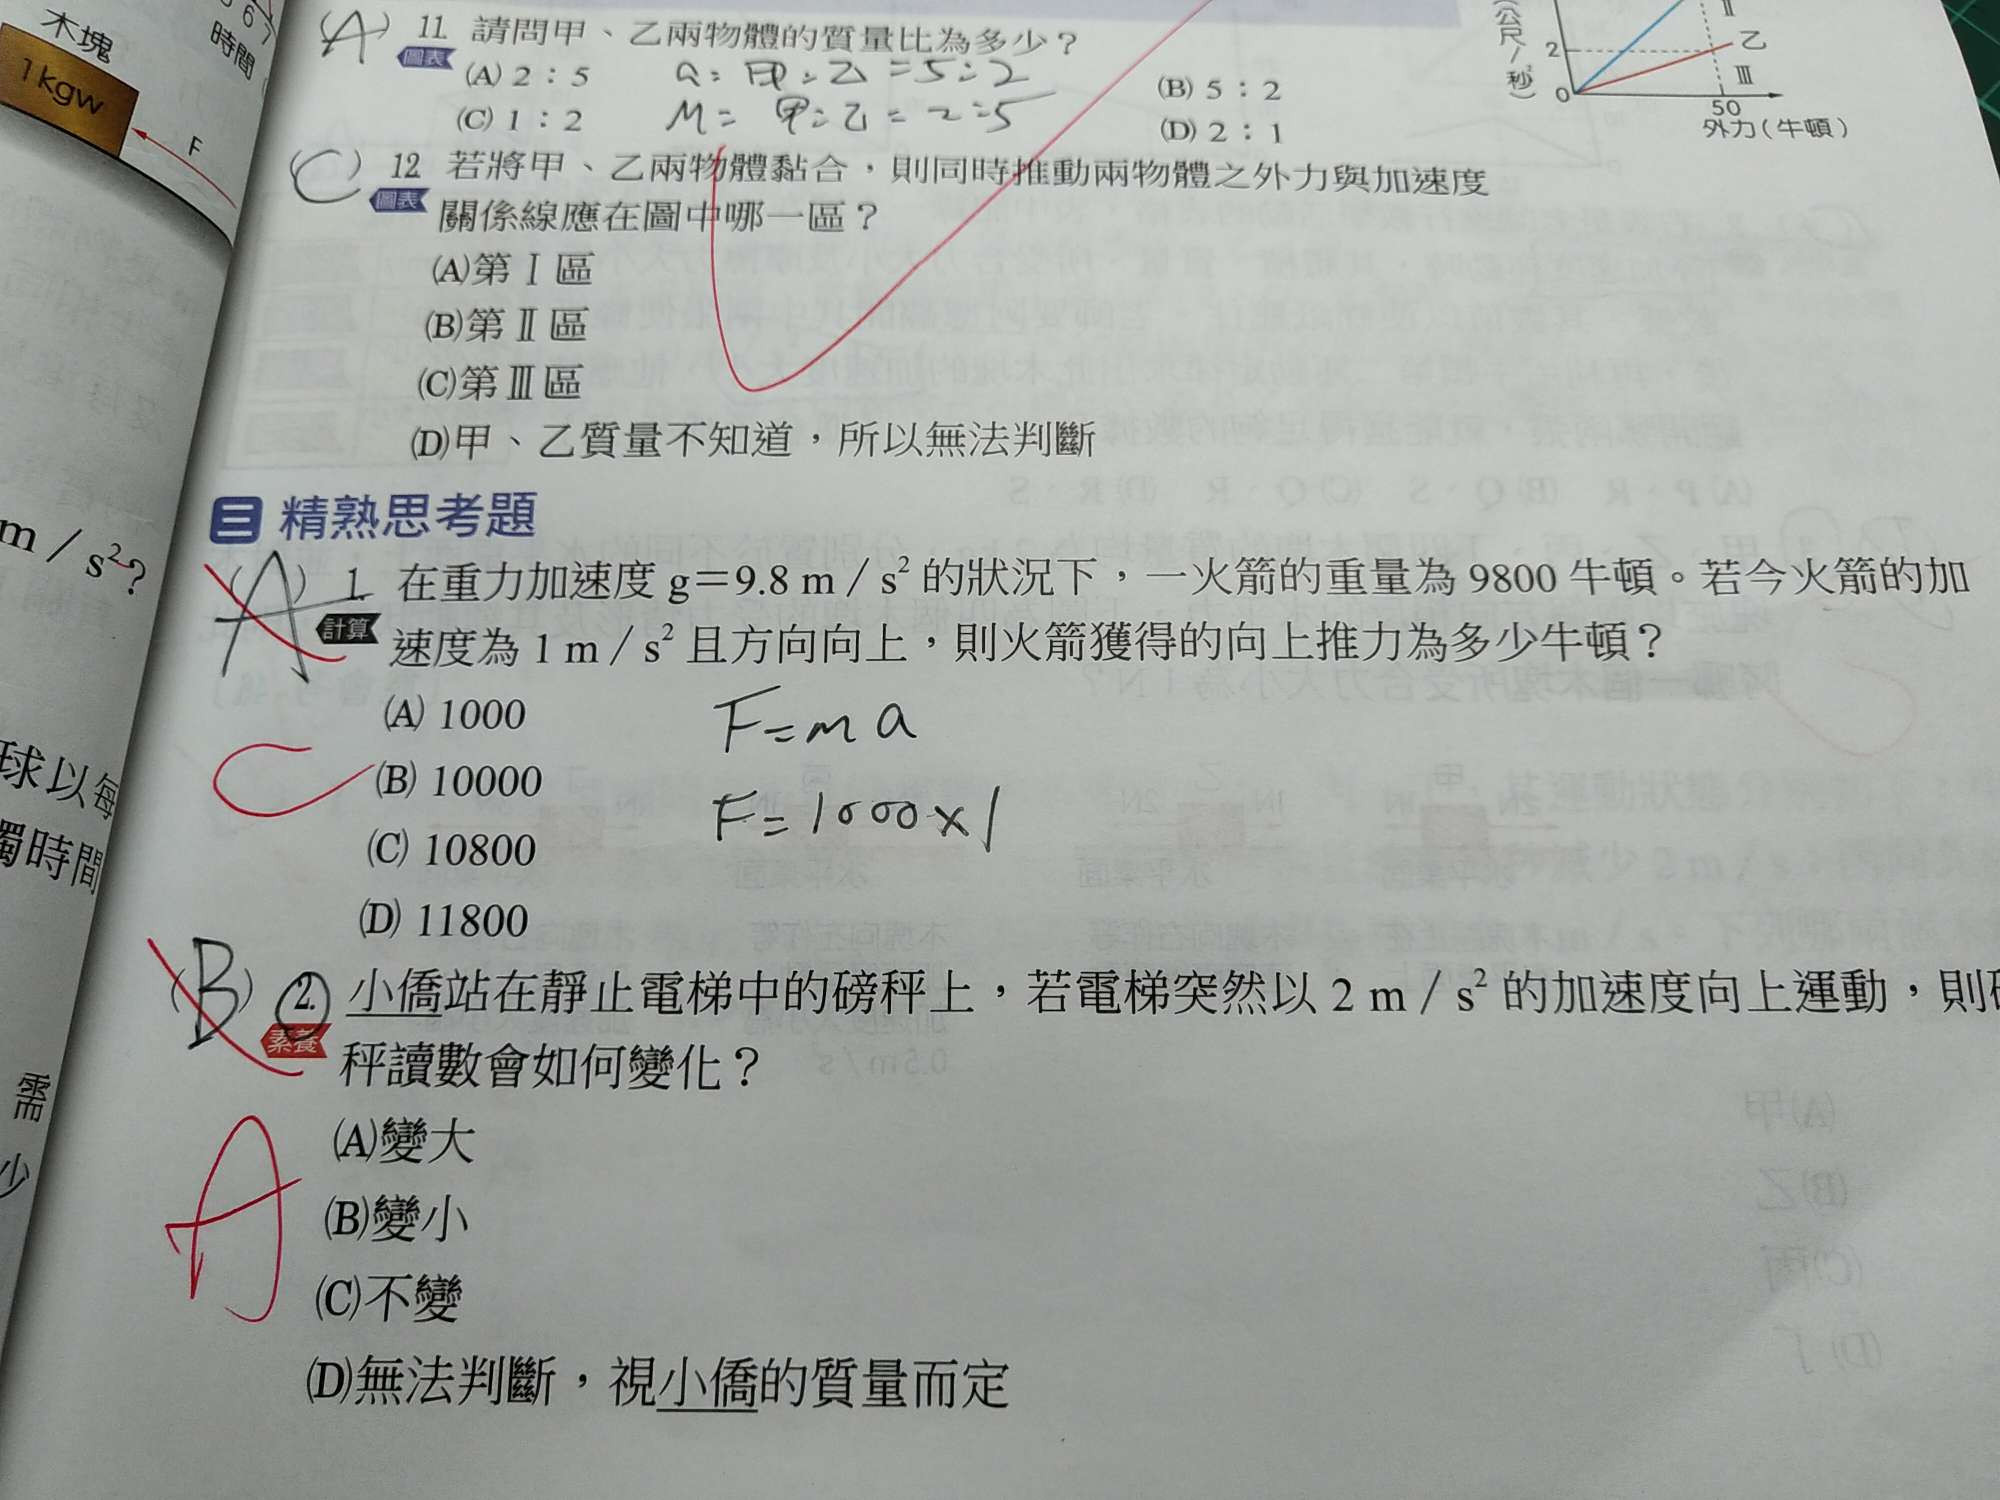 木塊
時間
1 kgw
F
m／s²?
球以每
獨時間
需
少
(A) 11. 請問甲、乙兩物體的質量比為多少？
圖表
(A) 2：5
a: 甲:乙=5:2
(B) 5：2
(C) 1：2
M= 甲:乙=2:5
(D) 2：1
(公尺／秒²)
2
0
50
II
乙
III
外力（牛頓）
(C) 12. 若將甲、乙兩物體黏合，則同時推動兩物體之外力與加速度
圖表
關係線應在圖中哪一區？
(A)第Ⅰ區
(B)第Ⅱ區
(C)第Ⅲ區
(D)甲、乙質量不知道，所以無法判斷
三 精熟思考題
(A) 1. 在重力加速度 g＝9.8 m／s² 的狀況下，一火箭的重量為 9800 牛頓。若今火箭的加
計算
速度為 1 m／s² 且方向向上，則火箭獲得的向上推力為多少牛頓？
(A) 1000
F=ma
C
(B) 10000
F=1000×1
(C) 10800
(D) 11800
(B) 2. 小僑站在靜止電梯中的磅秤上，若電梯突然以 2 m／s² 的加速度向上運動，則
素養
秤讀數會如何變化？
(A)變大
A
(B)變小
(C)不變
(D)無法判斷，視小僑的質量而定